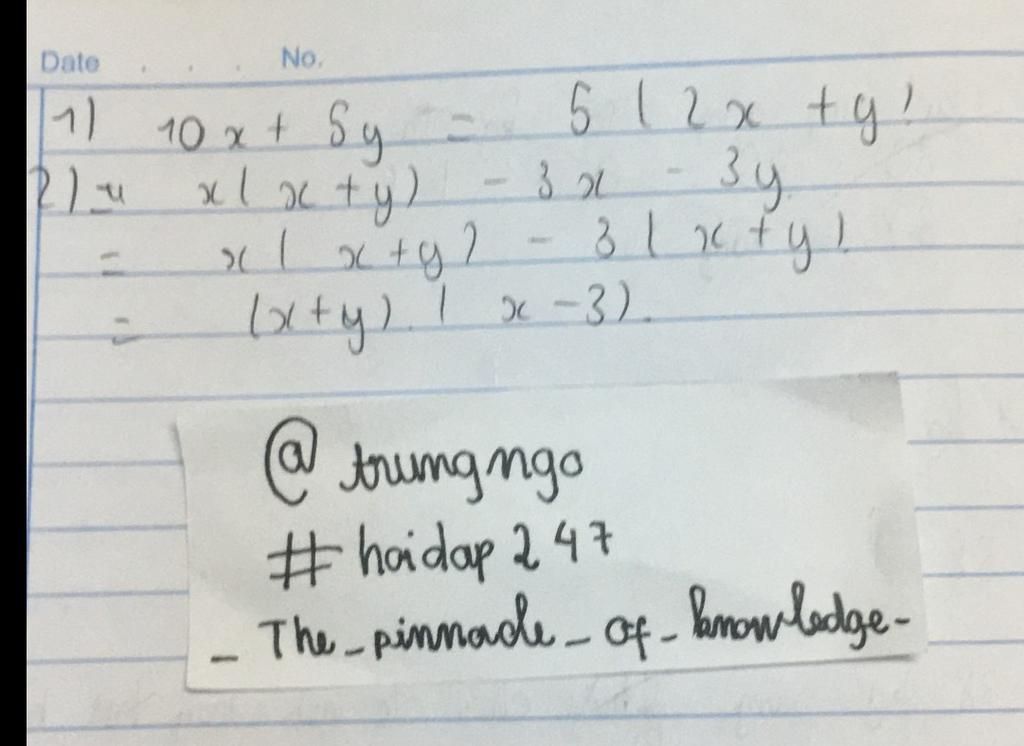 Date . . . No.
1) 10x + 5y = 5 ( 2x + y )
2) = x( x + y) - 3x - 3y
= x( x + y ) - 3 ( x + y )
= (x + y) . ( x - 3).
@ trungngo
# hoidap 247
_ The _ pinnacle _ of _ knowledge _